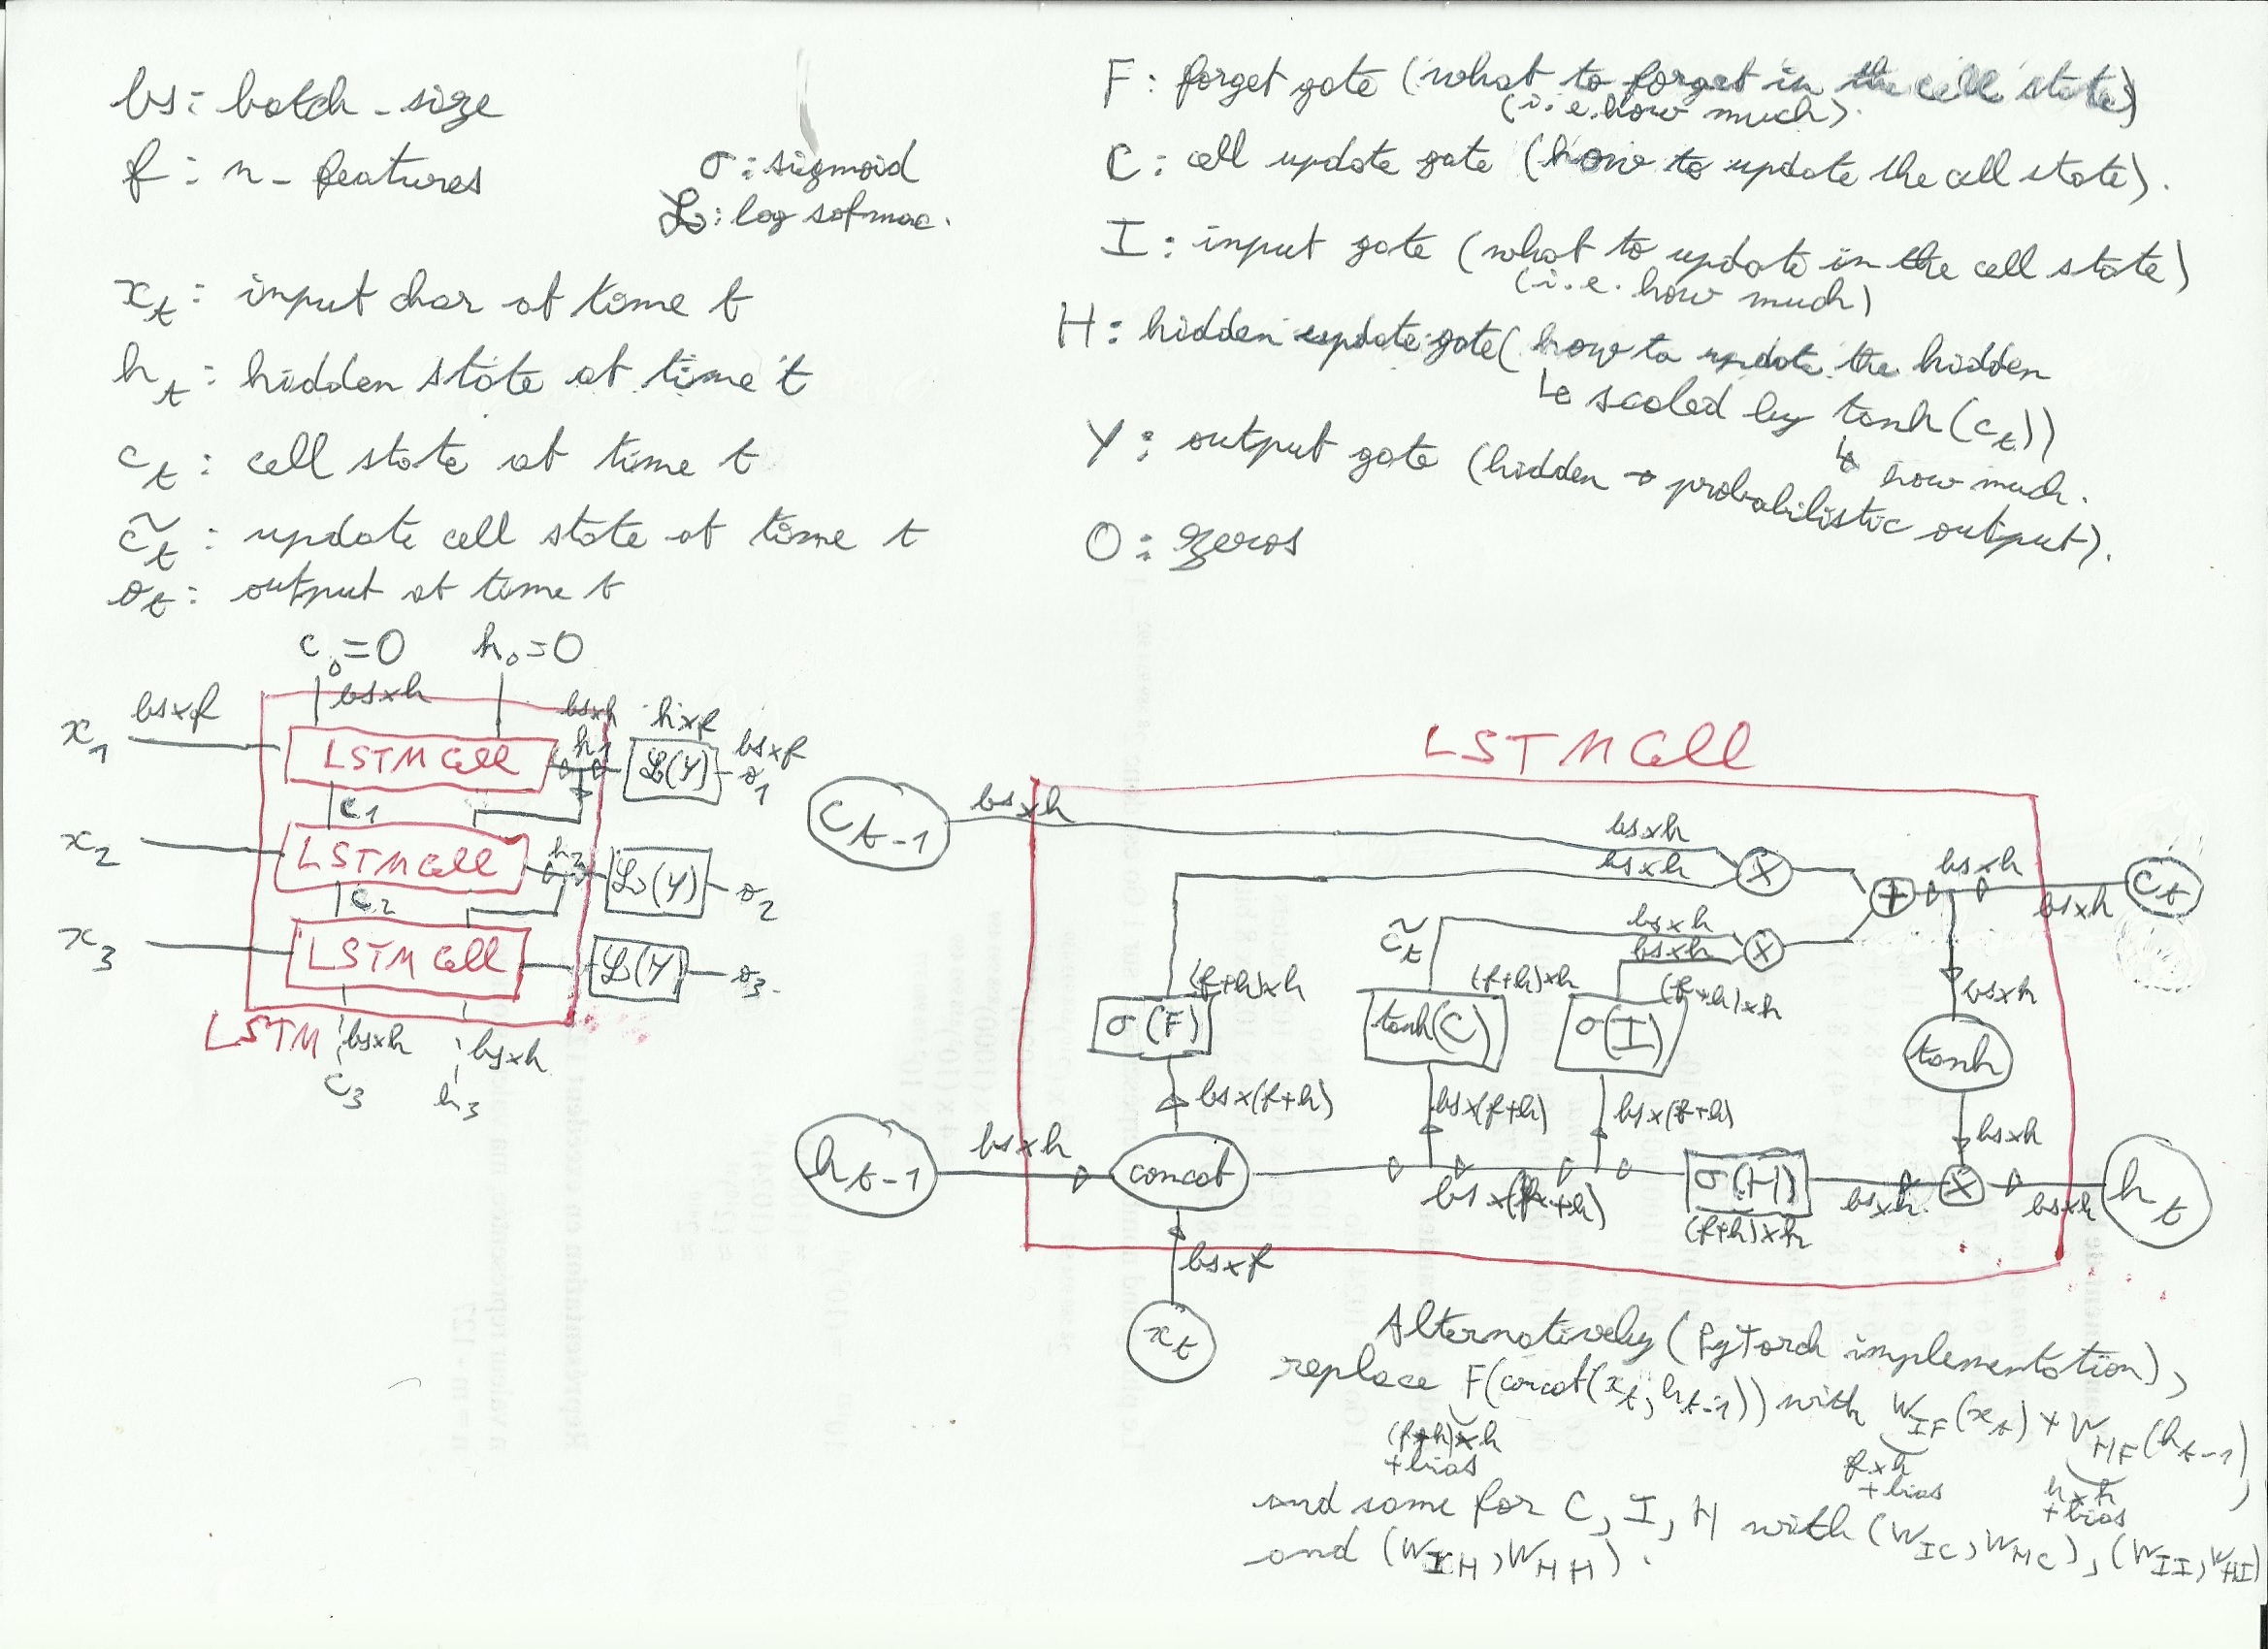 bs: batch_size
f: n_features
σ: sigmoid
ℒ: log sofmax.
x_t: input char at time t
h_t: hidden state at time t
c_t: cell state at time t
c̃_t: update cell state at time t
o_t: output at time t
F: forget gate (what to forget in the cell state)
(i.e. how much).
C: cell update gate (how to update the cell state).
I: input gate (what to update in the cell state)
(i.e. how much)
H: hidden update gate (how to update the hidden
↳ scaled by tanh(c_t))
↳ how much.
Y: output gate (hidden → probabilistic output).
O: zeros
c_0=0 h_0=0
bsxh
x_1 bsxf LSTM Cell bsxh h_1 hxf ℒ(Y) bsxf o_1
c_1
x_2 LSTM Cell h_2 ℒ(Y) o_2
c_2
x_3 LSTM Cell ℒ(Y) o_3.
LSTM bsxh bsxh
c_3 h_3
LSTM Cell
c_t-1 bsxh bsxh × bsxh c_t
bsxh + bsxh
c̃_t bsxh ×
bsxh
(f+h)xh (f+h)xh (f+h)xh bsxh
σ(F) tanh(C) σ(I) tanh
bsx(f+h) bsx(f+h) bsx(f+h) bsxh
h_t-1 bsxh concat bsx(f+h) σ(H) bsxh × bsxh h_t
(f+h)xh
bsxf
x_t
Alternatively (PyTorch implementation),
replace F(concat(x_t, h_t-1)) with W_IF(x_t) + W_HF(h_t-1),
(f+h)xh fxh hxh
+bias +bias +bias
and same for C, I, H with (W_IC, W_HC), (W_II, W_HI)
and (W_IH, W_HH).